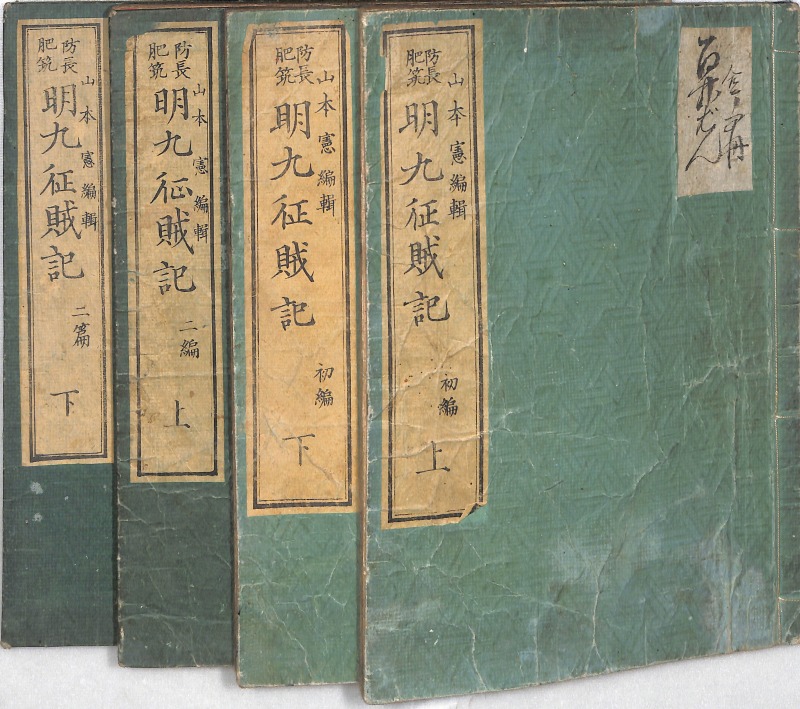 防長
肥筑
山本憲編輯
明九征賊記
初編
上
防長
肥筑
山本憲編輯
明九征賊記
初編
下
防長
肥筑
山本憲編輯
明九征賊記
二編
上
防長
肥筑
山本憲編輯
明九征賊記
二篇
下